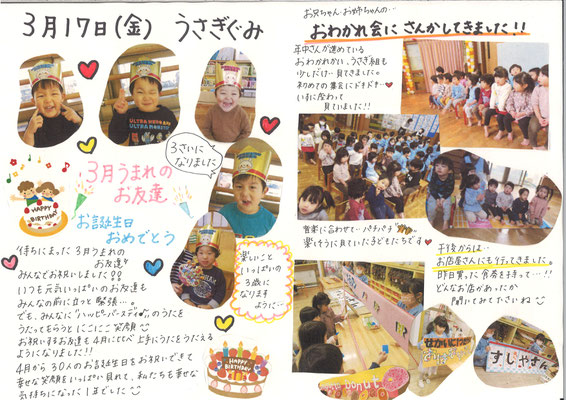 3月17日(金) うさぎぐみ
3さいに
なりました
3月うまれの
お友達
HAPPY
BIRTHDAY
お誕生日
おめでとう
待ちにまった3月うまれの
お友達を
みんなでお祝いしました!!
いつも元気いっぱいのお友達も
みんなの前に立つと緊張…。
でも、みんなに"ハッピーバースデー"のうたを
うたってもらうとにこにこ笑顔
お祝いするお友達も4月に比べ上手にうたをうたえる
ようになりました!!
4月から30人のお誕生日をお祝いできて
幸せな笑顔をいっぱい見れて、私たちも幸せな
気持ちになった1年でした
楽しいこと
いっぱいの
3歳に
なります
ように…
HAPPY
BIRTHDAY
お兄ちゃん・お姉ちゃんの…
おわかれ会に さんかしてきました!!
年中さんが進めている
おわかれかい、うさぎ組も
少しだけ…見てきました。
初めての集会にドキドキ…
いすに座って
見ていました!!
音楽に合わせて…パチパチ
楽しそうに見ていた子どもたちです
午後からは…
お店屋さんにも行ってきました。
昨日買った食券を持って…!!
どんなお店があったか
聞いてみてくださいね
donut
すしやさん